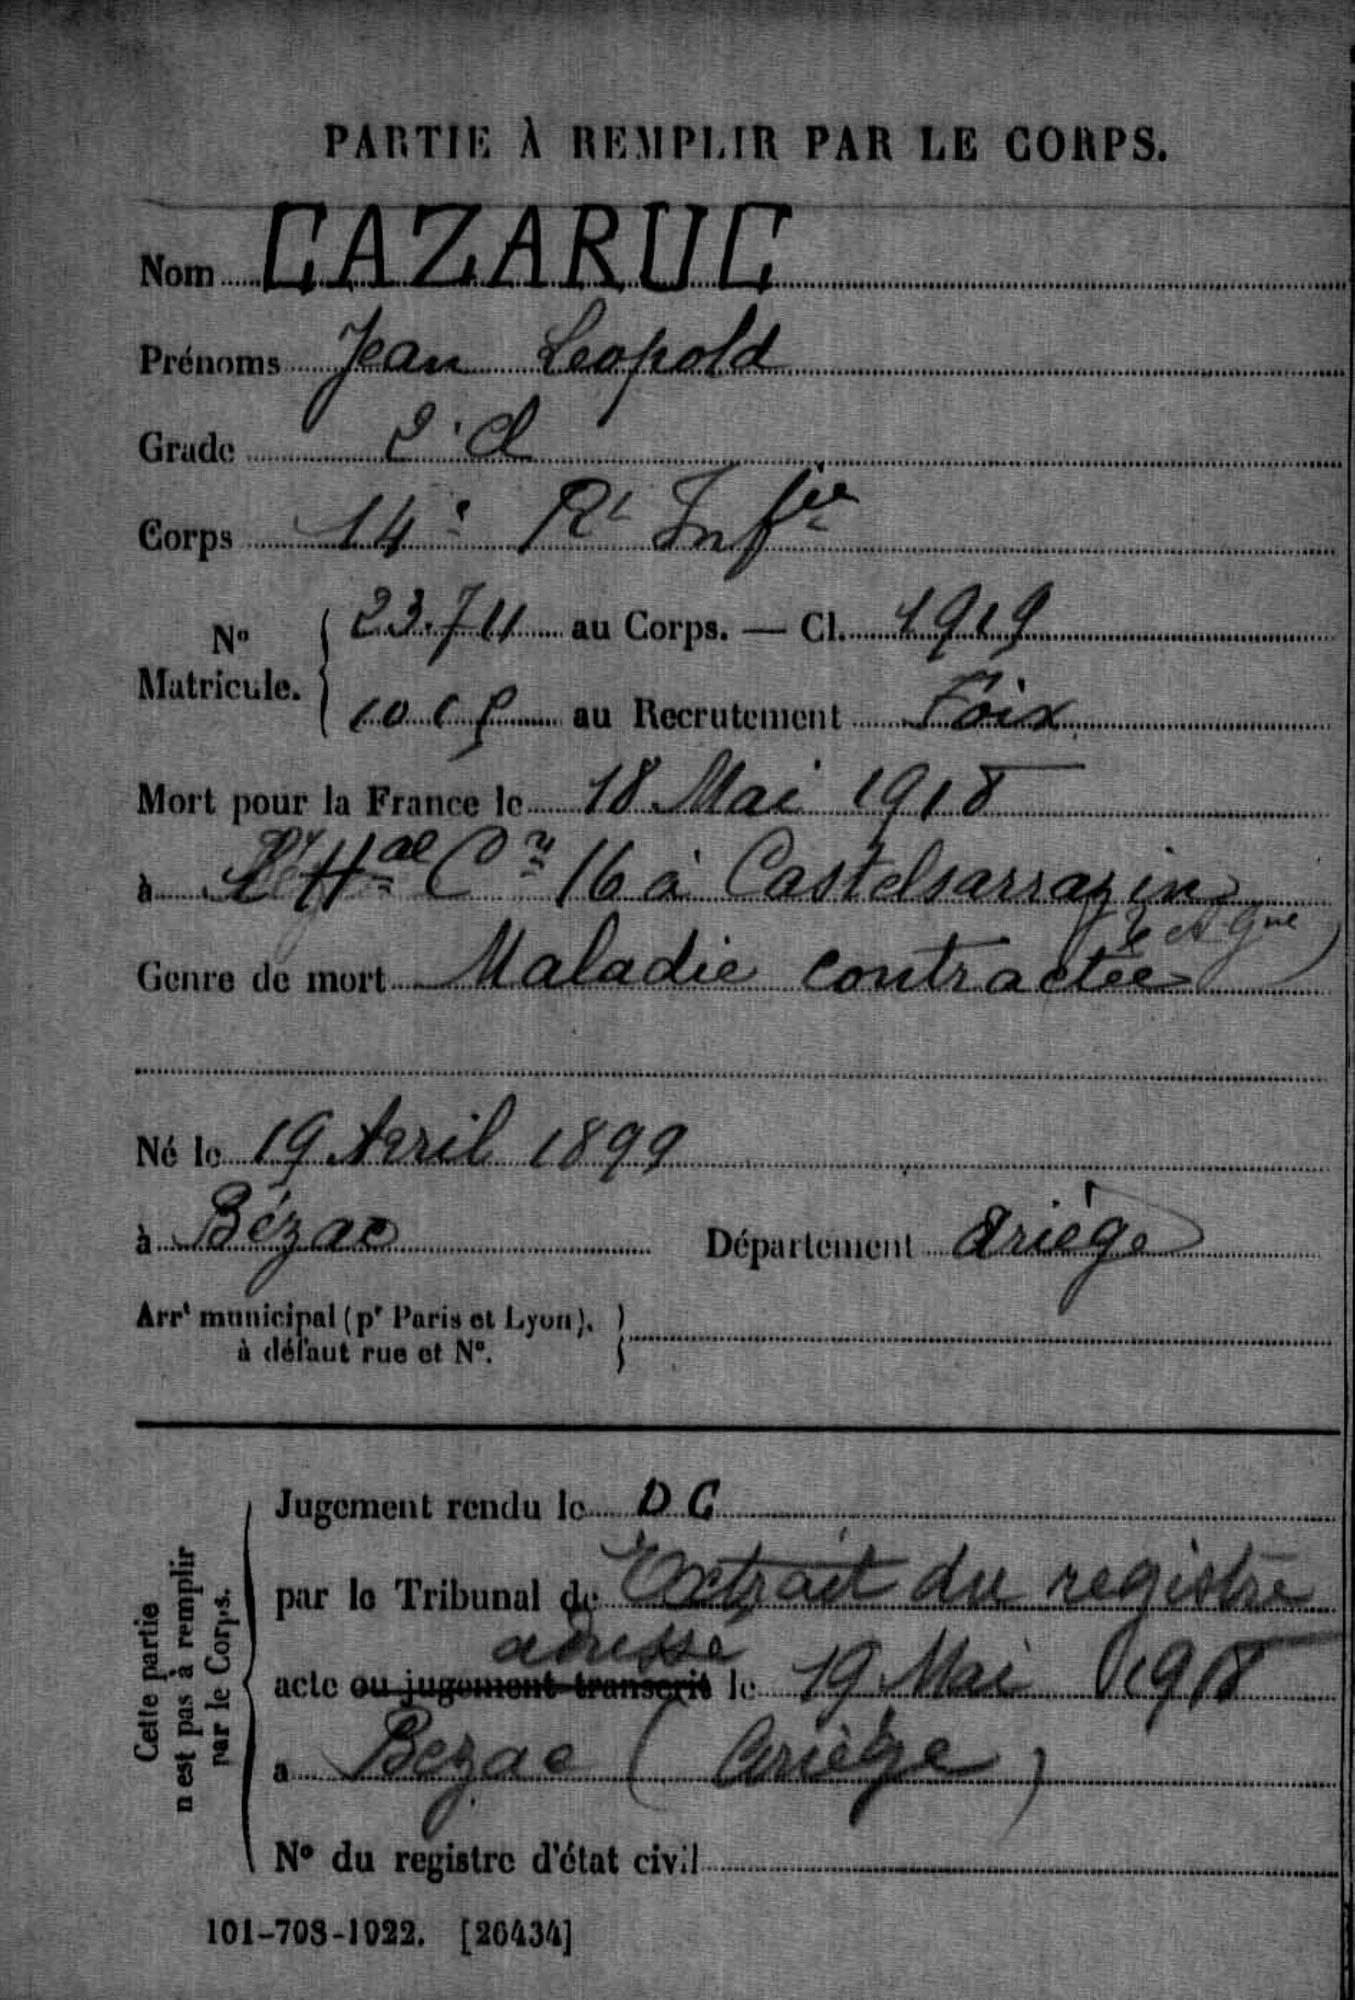 PARTIE À REMPLIR PAR LE CORPS.
Nom CAZARUC
Prénoms Jean Leopold
Grade 2e cl
Corps 14e Rt Infie
No Matricule. { 23.711 au Corps. — Cl. 1919
au Recrutement Foix
Mort pour la France le 18 Mai 1918
à l'Hal Cre 16 à Castelsarrazin
(Tet Gne)
Genre de mort Maladie contractée
Né le 19 Avril 1899
à Bézac Département Ariège
Arrt municipal (pr Paris et Lyon), à défaut rue et No. }
Cette partie n'est pas à remplir par le Corps.
Jugement rendu le DC
par le Tribunal de Extrait du registre
adressé
acte ou jugement transcrit le 19 Mai 1918
a Bezac (Ariège)
No du registre d'état civil
101-708-1922. [26434]